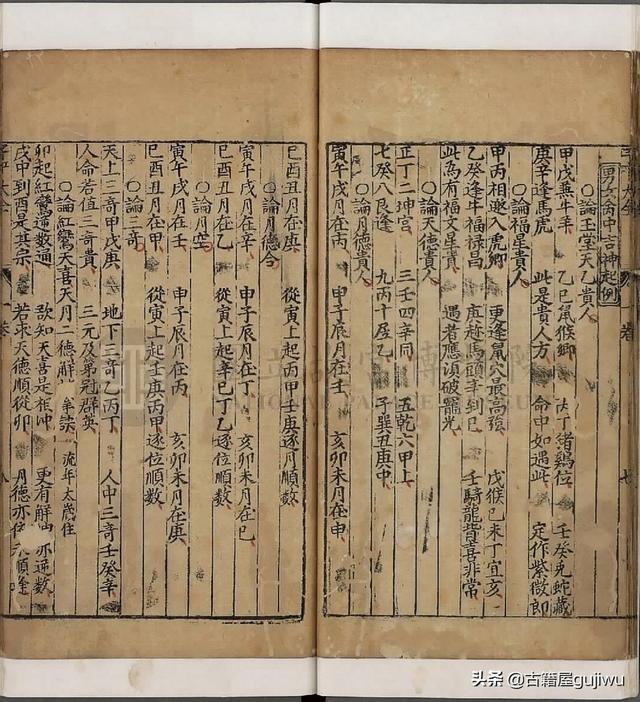 男女命中吉神起例
○論玉堂天乙貴人
甲戊兼牛羊 乙己鼠猴鄉 丙丁猪鷄位 壬癸兔蛇藏
庚辛逢馬虎 此是貴人方 命中如遇此 定作紫微郎
○論福星貴人
甲丙相邀入虎鄉 更逢鼠穴最高強 戊猴己未丁宜亥
乙癸逢牛福祿昌 庚趂馬頭辛到巳 壬騎龍背喜非常
此為有福文星貴 遇者應須破寵光
○論天德貴人
正丁二坤宮 三壬四辛同 五乾六甲上
七癸八艮逢 九丙十居乙 子巽丑庚中
○論月德貴人
寅午戌月在丙 申子辰月在壬 亥卯未月在甲
七
巳酉丑月在庚 從寅上起丙甲壬庚逐月順數
○論月德合
寅午戌月在辛 申子辰月在丁 亥卯未月在己
巳酉丑月在乙 從寅上起辛己丁乙逐位順數
○論月空
寅午戌月在壬 申子辰月在丙 亥卯未月在庚
巳酉丑月在甲 從寅上起壬庚丙甲逐位順數
○論三奇
天上三奇甲戊庚 地下三奇乙丙丁 人中三奇壬癸辛
人命若值三奇貴 三元及第冠群英
○論紅鸞天喜天月二德解 流年太歲住
卯起紅鸞逆數通 欲知天喜是相冲 更有解神亦逆數
戌中到酉是其宗 若求天德順從卯 月德亦依 順逢
一卷
八
头条 @古籍屋gujiwu